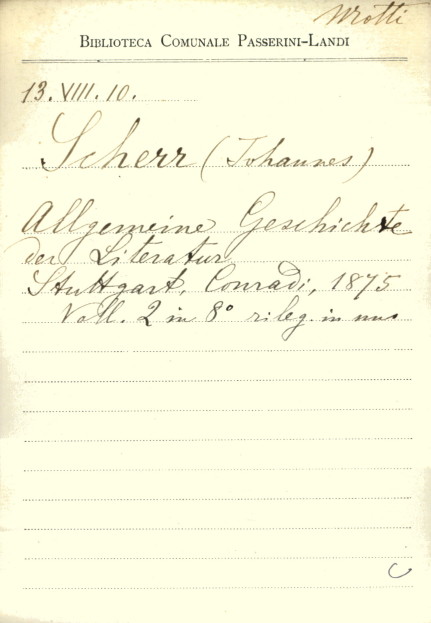 Wrotti
BIBLIOTECA COMUNALE PASSERINI-LANDI
13. VIII. 10.
Scherr (Johannes)
Allgemeine Geschichte
der Literatur
Stuttgart, Conradi, 1875
Voll. 2 in 8° rileg. in uno
C